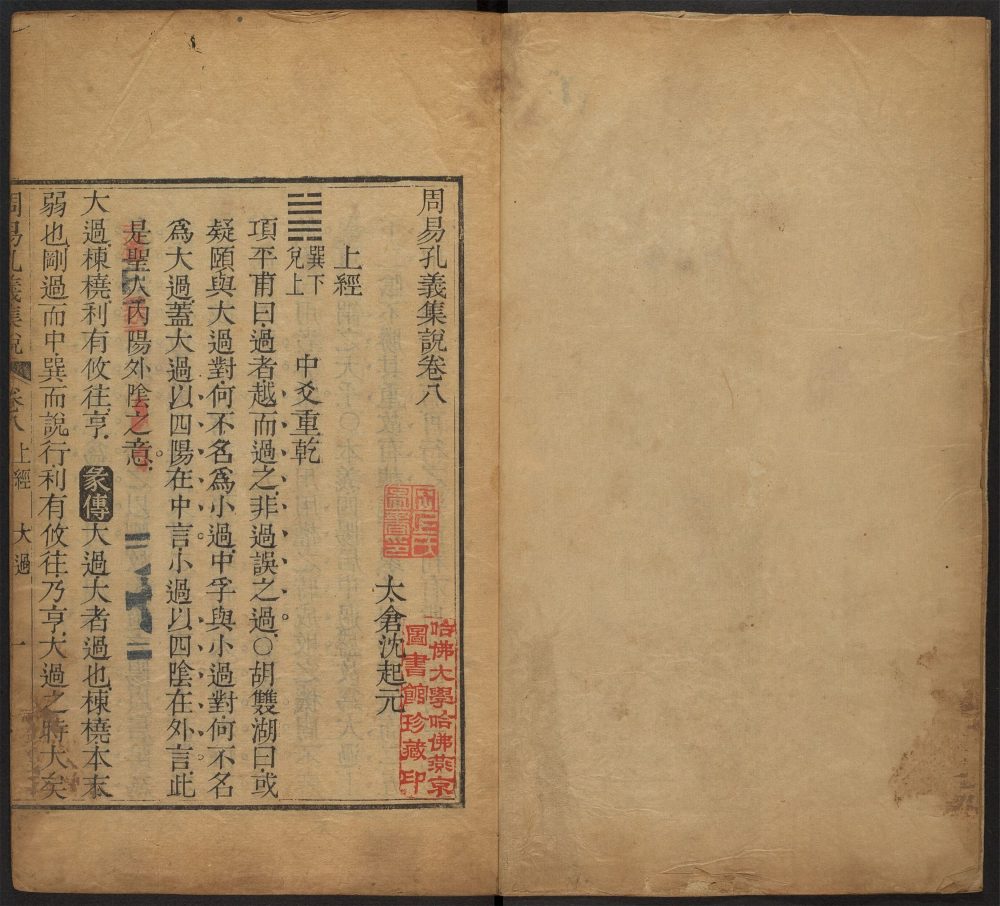 周易孔義集說卷八
太倉沈起元
哈佛大學哈佛燕京
圖書館珍藏印
上經
巽下
兌上
中爻重乾
項平甫曰過者越而過之非過誤之過〇胡雙湖曰或
疑頤與大過對何不名爲小過中孚與小過對何不名
爲大過蓋大過以四陽在中言小過以四陰在外言此
是聖人內陽外陰之意
大過棟橈利有攸往亨彖傳大過大者過也棟橈本末
弱也剛過而中巽而說行利有攸往乃亨大過之時大矣
周易孔義集說 卷八 上經 大過 一